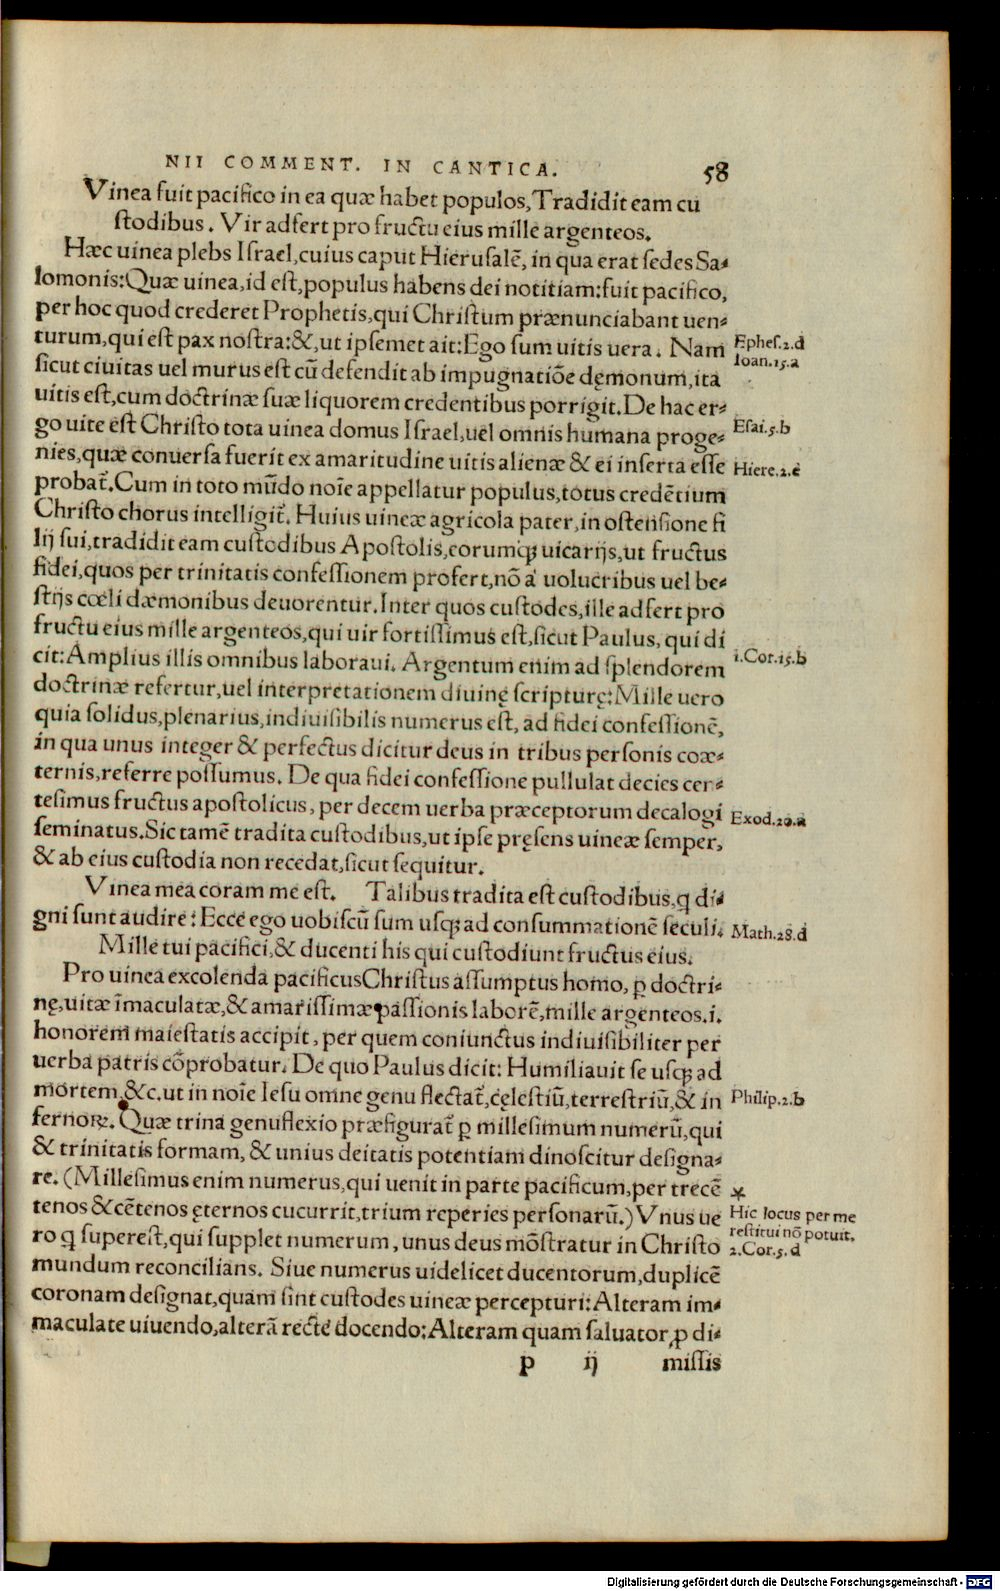 NII COMMENT. IN CANTICA. 58
Vinea fuit pacifico in ea quæ habet populos, Tradidit eam cu
stodibus. Vir adfert pro fructu eius mille argenteos.
Hæc uinea plebs Israel, cuius caput Hierusalē, in qua erat sedes Sa-
lomonis: Quæ uinea, id est, populus habens dei notitiam: fuit pacifico,
per hoc quod crederet Prophetis, qui Christum prænunciabant uen-
turum, qui est pax nostra: &, ut ipsemet ait: Ego sum uitis uera. Nam
Ephes.2.d
Ioan.15.a
sicut ciuitas uel murus est cū defendit ab impugnatiōe dęmonum, ita
uitis est, cum doctrinæ suæ liquorem credentibus porrigit. De hac er-
go uite est Christo tota uinea domus Israel, uel omnis humana proge-
Esai.5.b
nies, quæ conuersa fuerit ex amaritudine uitis alienæ & ei inserta esse
Hiere.2.e
probat̃. Cum in toto mūdo noīe appellatur populus, totus credētium
Christo chorus intelligit̃. Huius uineæ agricola pater, in ostensione fi
lij sui, tradidit eam custodibus Apostolis, eorumqꝫ uicarijs, ut fructus
fidei, quos per trinitatis confessionem profert, nō à uolucribus uel be-
stijs cœli dæmonibus deuorentur. Inter quos custodes, ille adfert pro
fructu eius mille argenteos, qui uir fortissimus est, sicut Paulus, qui di
cit: Amplius illis omnibus laboraui. Argentum enim ad splendorem
1.Cor.15.b
doctrinæ refertur, uel interpretationem diuinę scripturę: Mille uero
quia solidus, plenarius, indiuisibilis numerus est, ad fidei confessionē,
in qua unus integer & perfectus dicitur deus in tribus personis coæ-
ternis, referre possumus. De qua fidei confessione pullulat decies cen-
tesimus fructus apostolicus, per decem uerba præceptorum decalogi
Exod.20.a
seminatus. Sic tamē tradita custodibus, ut ipse pręsens uineæ semper,
& ab eius custodia non recedat, sicut sequitur.
Vinea mea coram me est. Talibus tradita est custodibus, q di-
gni sunt audire: Ecce ego uobiscū sum usqꝫ ad consummationē seculi.
Math.28.d
Mille tui pacifici, & ducenti his qui custodiunt fructus eius.
Pro uinea excolenda pacificus Christus assumptus homo, ꝑ doctri-
nę, uitæ īmaculatæ, & amarissimæ passionis laborē, mille argenteos.i.
honorem maiestatis accipit, per quem coniunctus indiuisibiliter per
uerba patris cōprobatur. De quo Paulus dicit: Humiliauit se usqꝫ ad
mortem, &c. ut in noīe Iesu omne genu flectat̃, cęlestiū, terrestriū, & in
Philip.2.b
fernoꝝ. Quæ trina genuflexio præfigurat̃ ꝑ millesimum numerū, qui
& trinitatis formam, & unius deitatis potentiam dinoscitur designa-
re. (Millesimus enim numerus, qui uenit in parte pacificum, per trecē
*
tenos & cētenos ęternos cucurrit, trium reperies personarū.) Vnus ue
Hic locus per me
restitui nō potuit.
ro q superest, qui supplet numerum, unus deus mōstratur in Christo
2.Cor.5.d
mundum reconcilians. Siue numerus uidelicet ducentorum, duplicē
coronam designat, quam sint custodes uineæ percepturi: Alteram im-
maculate uiuendo, alterā rectè docendo: Alteram quam saluator, ꝓ di-
p ij missis
Digitalisierung gefördert durch die Deutsche Forschungsgemeinschaft - DFG